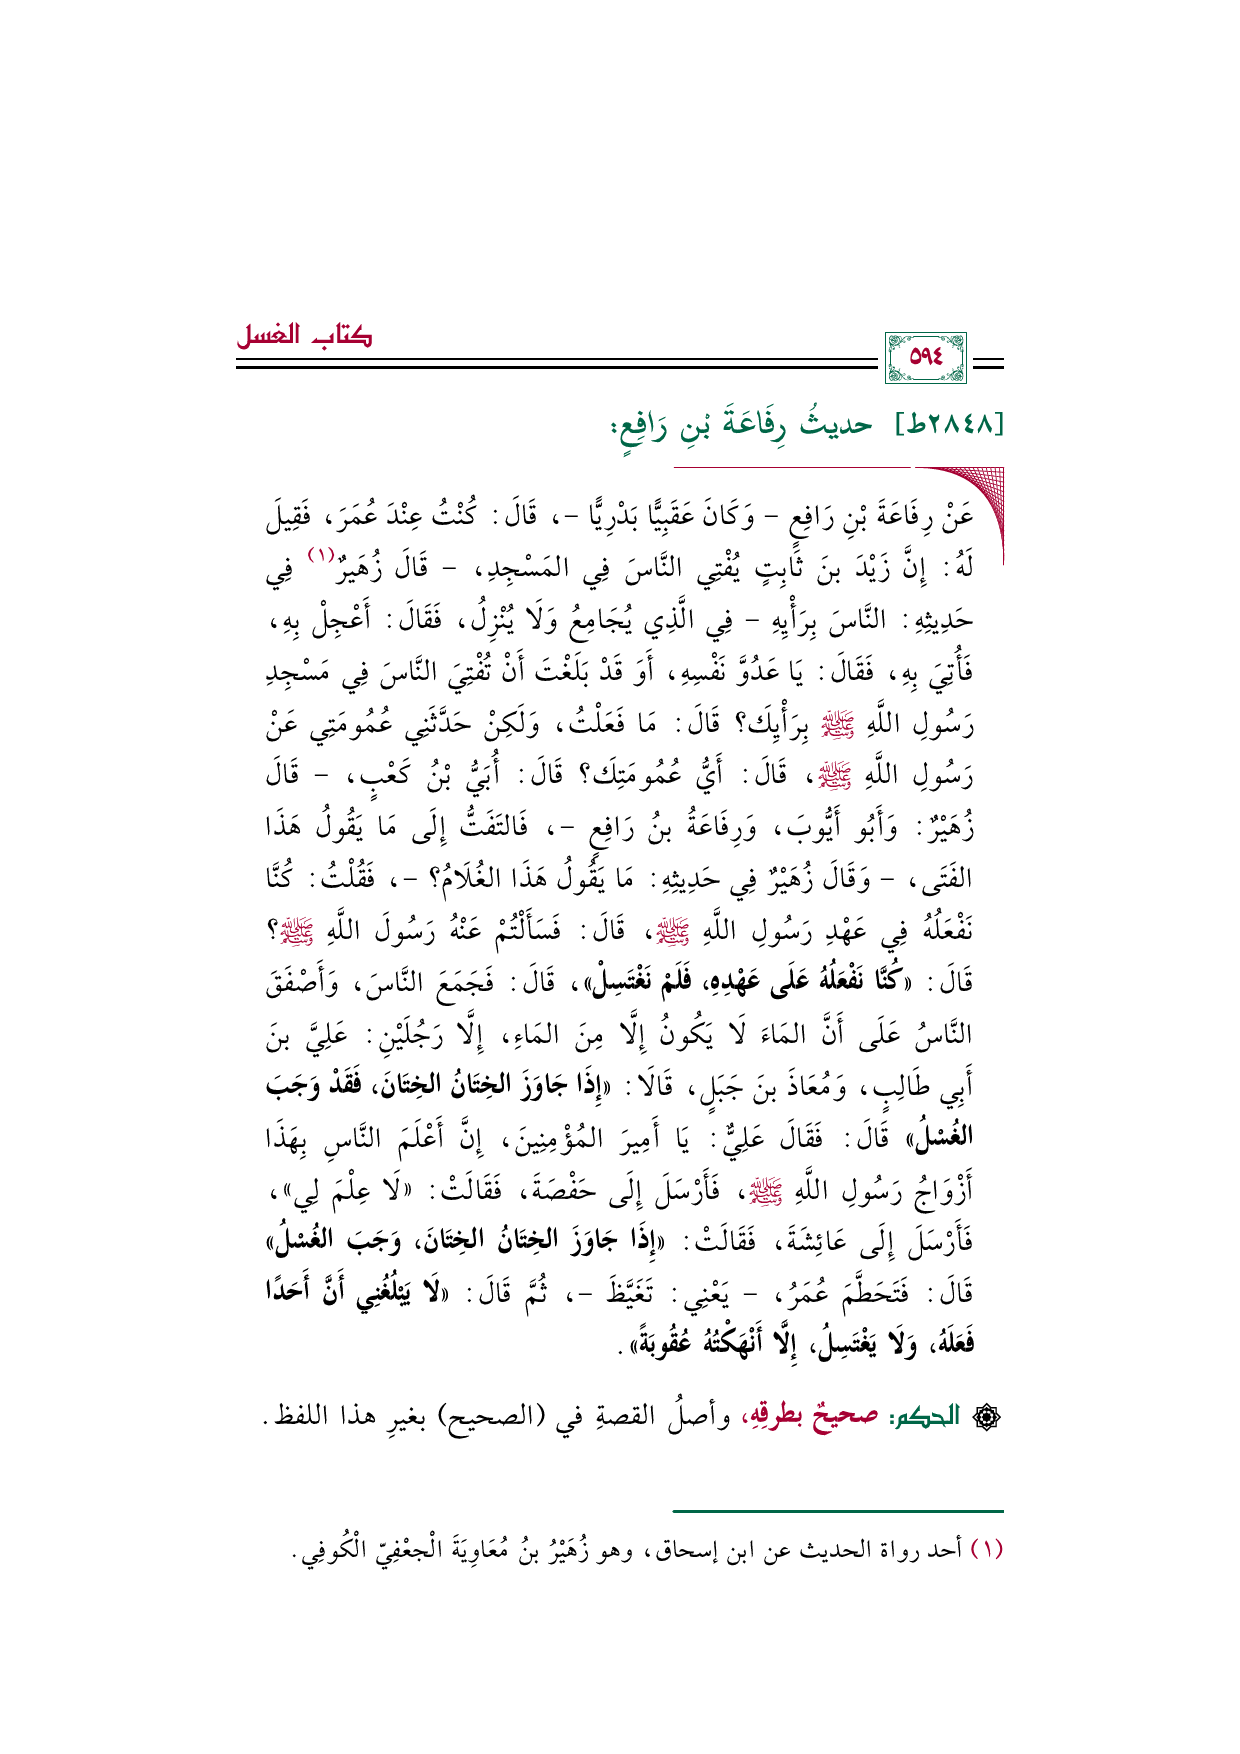 كتاب الغسل
٥٩٤
[٢٨٤٨ط] حديثُ رِفَاعَةَ بْنِ رَافِعٍ:
عَنْ رِفَاعَةَ بْنِ رَافِعٍ – وَكَانَ عَقَبِيًّا بَدْرِيًّا –، قَالَ: كُنْتُ عِنْدَ عُمَرَ، فَقِيلَ
لَهُ: إِنَّ زَيْدَ بنَ ثَابِتٍ يُفْتِي النَّاسَ فِي المَسْجِدِ، – قَالَ زُهَيرٌ(١) فِي
حَدِيثِهِ: النَّاسَ بِرَأْيِهِ – فِي الَّذِي يُجَامِعُ وَلَا يُنْزِلُ، فَقَالَ: أَعْجِلْ بِهِ،
فَأُتِيَ بِهِ، فَقَالَ: يَا عَدُوَّ نَفْسِهِ، أَوَ قَدْ بَلَغْتَ أَنْ تُفْتِيَ النَّاسَ فِي مَسْجِدِ
رَسُولِ اللَّهِ ﷺ بِرَأْيِكَ؟ قَالَ: مَا فَعَلْتُ، وَلَكِنْ حَدَّثَنِي عُمُومَتِي عَنْ
رَسُولِ اللَّهِ ﷺ، قَالَ: أَيُّ عُمُومَتِكَ؟ قَالَ: أُبَيُّ بْنُ كَعْبٍ، – قَالَ
زُهَيْرٌ: وَأَبُو أَيُّوبَ، وَرِفَاعَةُ بنُ رَافِعٍ –، فَالتَفَتُّ إِلَى مَا يَقُولُ هَذَا
الفَتَى، – وَقَالَ زُهَيْرٌ فِي حَدِيثِهِ: مَا يَقُولُ هَذَا الغُلَامُ؟ –، فَقُلْتُ: كُنَّا
نَفْعَلُهُ فِي عَهْدِ رَسُولِ اللَّهِ ﷺ، قَالَ: فَسَأَلْتُمْ عَنْهُ رَسُولَ اللَّهِ ﷺ؟
قَالَ: «كُنَّا نَفْعَلُهُ عَلَى عَهْدِهِ، فَلَمْ نَغْتَسِلْ»، قَالَ: فَجَمَعَ النَّاسَ، وَأَصْفَقَ
النَّاسُ عَلَى أَنَّ المَاءَ لَا يَكُونُ إِلَّا مِنَ المَاءِ، إِلَّا رَجُلَيْنِ: عَلِيَّ بنَ
أَبِي طَالِبٍ، وَمُعَاذَ بنَ جَبَلٍ، قَالَا: «إِذَا جَاوَزَ الخِتَانُ الخِتَانَ، فَقَدْ وَجَبَ
الغُسْلُ» قَالَ: فَقَالَ عَلِيٌّ: يَا أَمِيرَ المُؤْمِنِينَ، إِنَّ أَعْلَمَ النَّاسِ بِهَذَا
أَزْوَاجُ رَسُولِ اللَّهِ ﷺ، فَأَرْسَلَ إِلَى حَفْصَةَ، فَقَالَتْ: «لَا عِلْمَ لِي»،
فَأَرْسَلَ إِلَى عَائِشَةَ، فَقَالَتْ: «إِذَا جَاوَزَ الخِتَانُ الخِتَانَ، وَجَبَ الغُسْلُ»
قَالَ: فَتَحَطَّمَ عُمَرُ، – يَعْنِي: تَغَيَّظَ –، ثُمَّ قَالَ: «لَا يَبْلُغُنِي أَنَّ أَحَدًا
فَعَلَهُ، وَلَا يَغْتَسِلُ، إِلَّا أَنْهَكْتُهُ عُقُوبَةً».
الحكم: صحيحٌ بطرقِهِ، وأصلُ القصةِ في (الصحيح) بغيرِ هذا اللفظ.
(١) أحد رواة الحديث عن ابن إسحاق، وهو زُهَيْرُ بنُ مُعَاوِيَةَ الْجعْفِيّ الْكُوفِي.